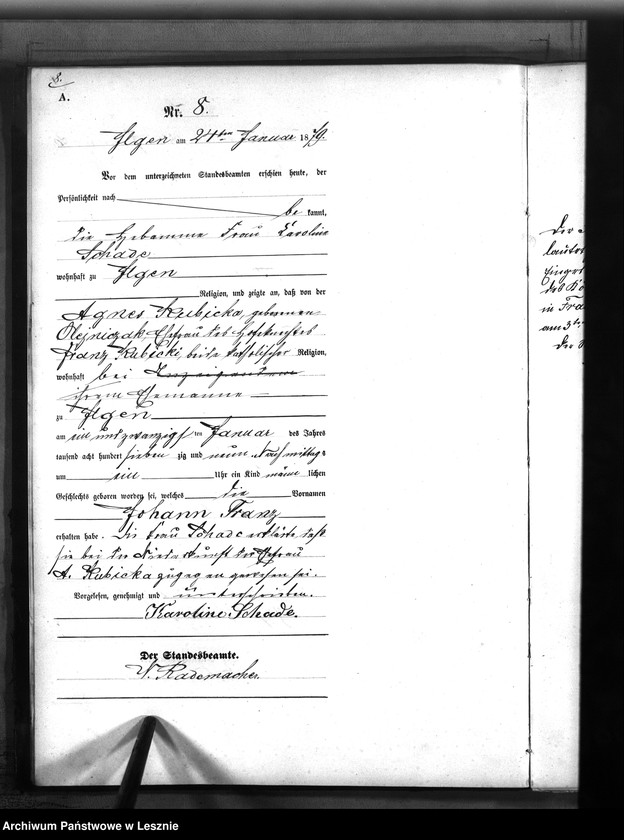 8.
A.
Nr. 8.
Ilgen am 24ten Januar 1879.
Vor dem unterzeichneten Standesbeamten erschien heute, der
Persönlichkeit nach
be kannt,
die Hebamme Frau Karoline
Schade
wohnhaft zu Ilgen
Religion, und zeigte an, daß von der
Agnes Kubicka, geborenen
Olejniczak, Ehefrau des
Franz Kubicki, beide katholischer Religion,
wohnhaft bei
ihrem Ehemanne
zu Ilgen
am ein und zwanzigsten Januar des Jahres
tausend acht hundert sieben zig und neun Nachmittags
um ein Uhr ein Kind männ lichen
Geschlechts geboren worden sei, welches die Vornamen
Johann Franz
erhalten habe. Die Frau Schade erklärte daß
sie bei der Niederkunft der Ehefrau
A. Kubicka zugegen gewesen sei.
Vorgelesen, genehmigt und unterschrieben.
Karoline Schade.
Der Standesbeamte.
W. Rademacher.
Der
in
am 3ten
Der
Archiwum Państwowe w Lesznie